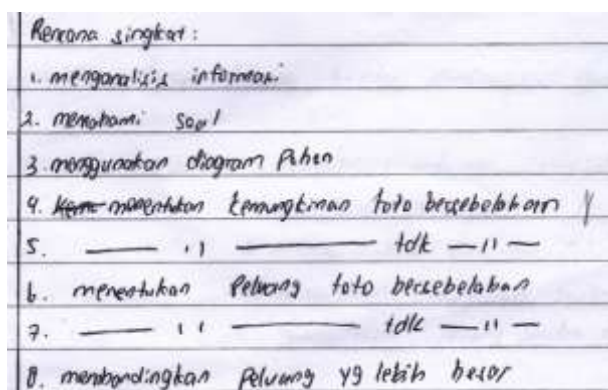 Rencana singkat :
1. menganalisis informasi
2. memahami soal
3. menggunakan diagram Pohon
4. menentukan kemungkinan foto bersebelahan
5. —— ,, —— tdk — ,, —
6. menentukan Peluang foto bersebelahan
7. —— ,, —— tdk — ,, —
8. membandingkan Peluang yg lebih besar